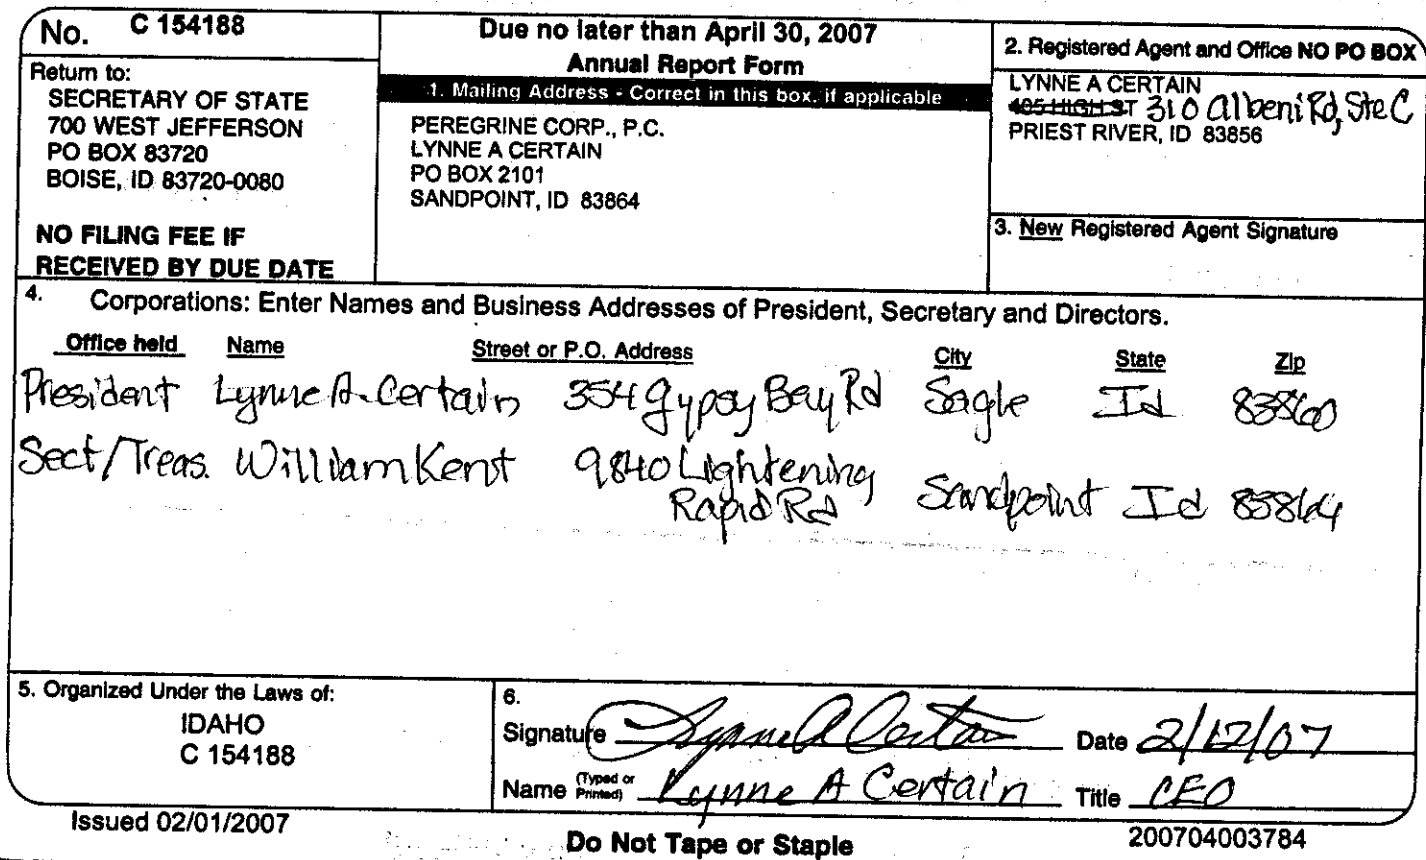 No. C 154188
Return to:
SECRETARY OF STATE
700 WEST JEFFERSON
PO BOX 83720
BOISE, ID 83720-0080
NO FILING FEE IF
RECEIVED BY DUE DATE
Due no later than April 30, 2007
Annual Report Form
1. Mailing Address - Correct in this box, if applicable
PEREGRINE CORP., P.C.
LYNNE A CERTAIN
PO BOX 2101
SANDPOINT, ID 83864
2. Registered Agent and Office NO PO BOX
LYNNE A CERTAIN
405 HIGH ST 310 Albeni Rd, Ste C
PRIEST RIVER, ID 83856
3. New Registered Agent Signature
4. Corporations: Enter Names and Business Addresses of President, Secretary and Directors.
Office held Name Street or P.O. Address City State Zip
President Lynne A. Certain 354 Gypsy Bay Rd Sagle Id 83860
Sect/Treas. William Kent 9840 Lightening
Rapid Rd Sandpoint Id 83864
5. Organized Under the Laws of:
IDAHO
C 154188
6.
Signature Lynne A Certain Date 2/12/07
Name (Typed or Printed) Lynne A Certain Title CEO
Issued 02/01/2007
Do Not Tape or Staple
200704003784